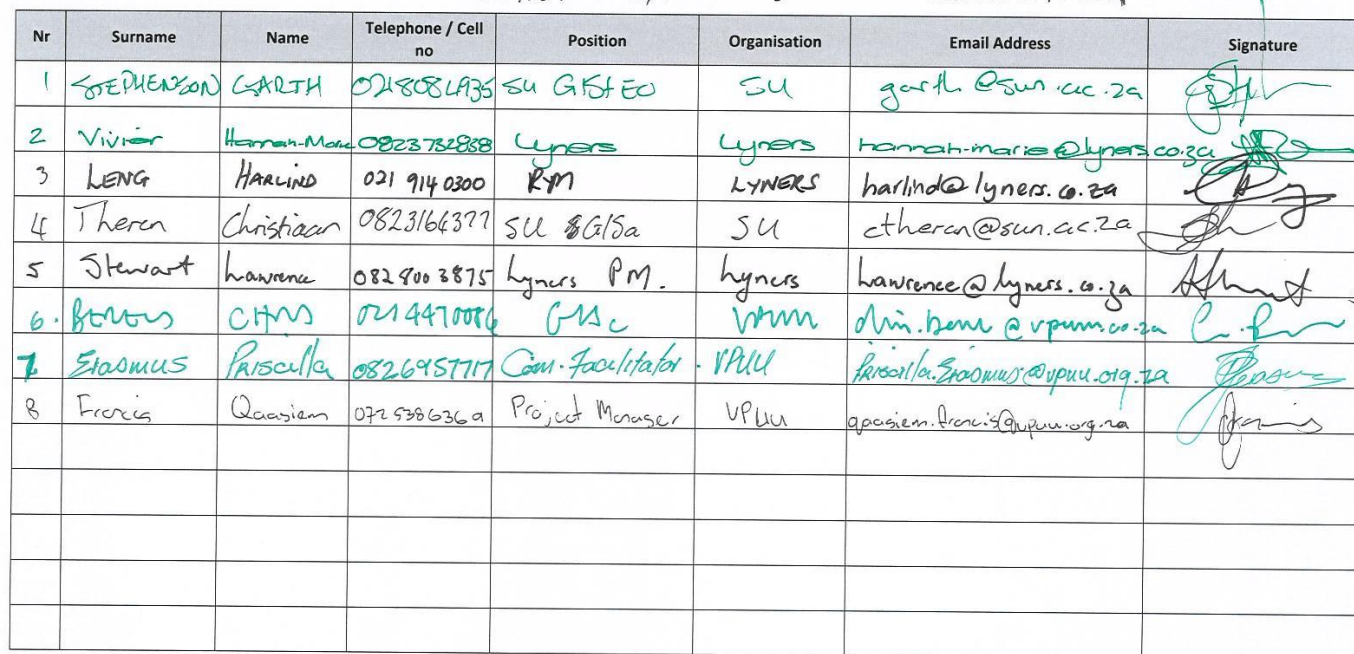 Nr Surname Name Telephone / Cell no Position Organisation Email Address Signature
1 STEPHENSON GARTH 0218084935 SU GIS+EO SU garth@sun.ac.za
2 Vivier Hannah-Marie 0823732838 Lyners Lyners hannah-marie@lyners.co.za
3 LENG HARLIND 021 914 0300 LYNERS harlind@lyners.co.za
4 Theron Christiaan 0823164377 SU SU ctheron@sun.ac.za
5 Stewart Lawrence 082 800 3875 Lyners PM. Lyners Lawrence@lyners.co.za
6.
7 Erasmus Priscilla 0826957717 Com. Facilitator. VPUU Priscilla.Erasmus@vpuu.org.za
8 Francis Qaasiem Project Manager VPUU qaasiem.francis@vpuu.org.za